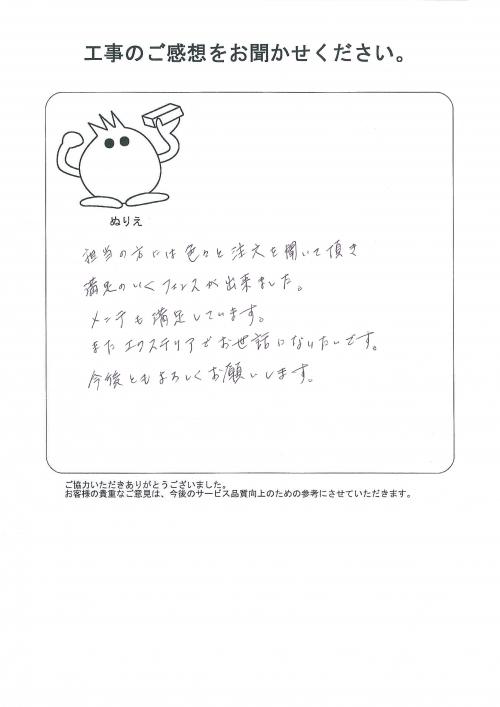 工事のご感想をお聞かせください。
ぬりえ
担当の方には色々と注文を聞いて頂き
満足のいくフェンスが出来ました。
メンテも満足しています。
またエクステリアでお世話になりたいです。
今後ともよろしくお願いします。
ご協力いただきありがとうございました。
お客様の貴重なご意見は、今後のサービス品質向上のための参考にさせていただきます。